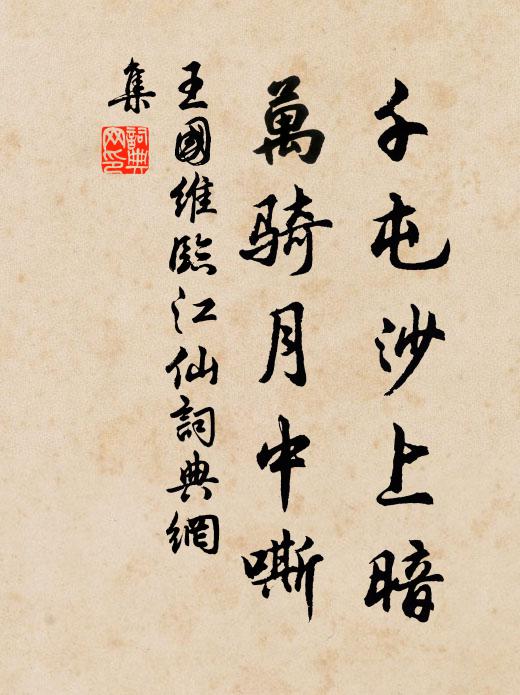 千屯沙上暗
萬骑月中嘶
王國維臨江仙詞典網
集
詞典
网印